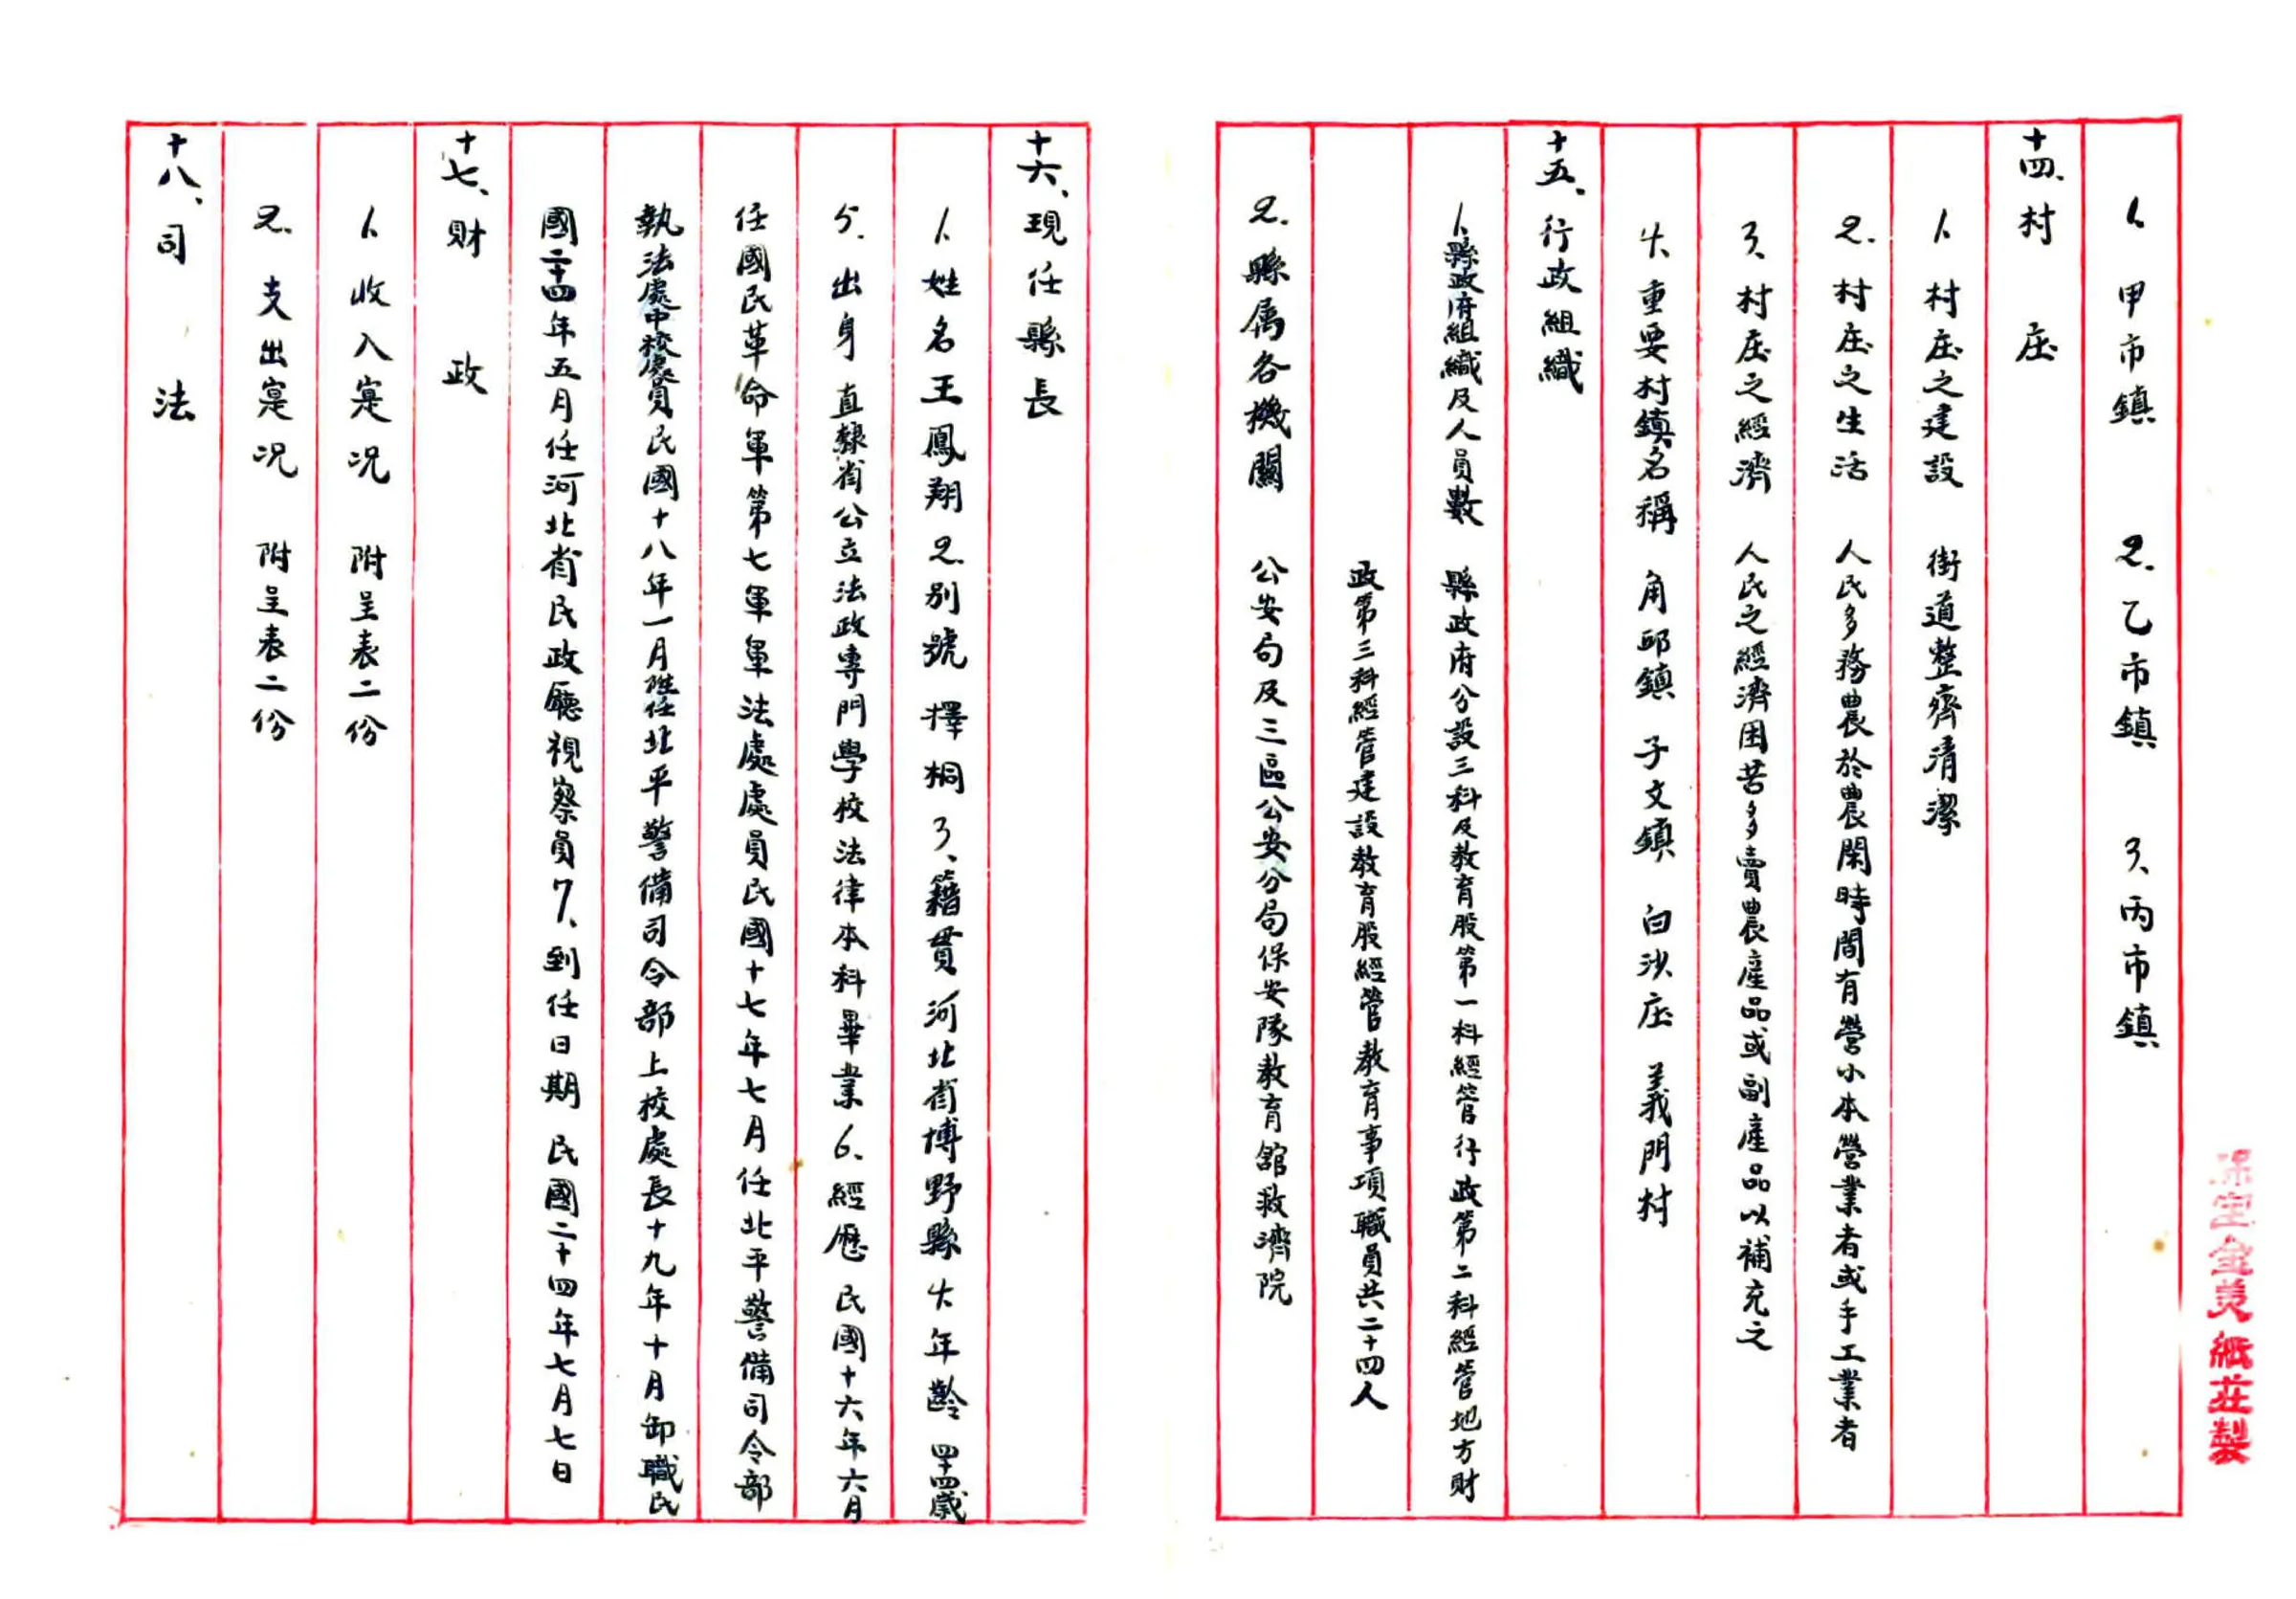 1、甲市鎮　2.乙市鎮　3、丙市鎮
十四、村　庄
1、村庄之建設　街道整齊清潔
2.村庄之生活　人民多務農於農閑時間有營小本營業者或手工業者
3、村庄之經濟　人民之經濟困苦多賣農產品或副產品以補充之
4、重要村鎮名稱　角邱鎮　子文鎮　白沙庄　義門村
十五、行政組織
1、縣政府組織及人員數　縣政府分設三科及教育股第一科經管行政第二科經管地方財
政第三科經管建設教育股經管教育事項職員共二十四人
2.縣属各機關　公安局及三區公安分局保安隊教育舘救濟院
十六、現任縣長
1、姓名王鳳翔2.別號　擇桐3、籍貫河北省博野縣4年齡　四十四歲
5.出身　直隸省公立法政專門學校法律本科畢業6、經歷　民國十六年六月
任國民革命軍第七軍軍法處處員民國十七年七月任北平警備司令部
執法處中校處員民國十八年一月陞任北平警備司令部上校處長十九年十月卸職民
國二十四年五月任河北省民政廳視察員7、到任日期　民國二十四年七月七日
十七、財　政
1、收入寔况　附呈表二份
2.支出寔况　附呈表二份
十八、司　法
保定金美紙莊製